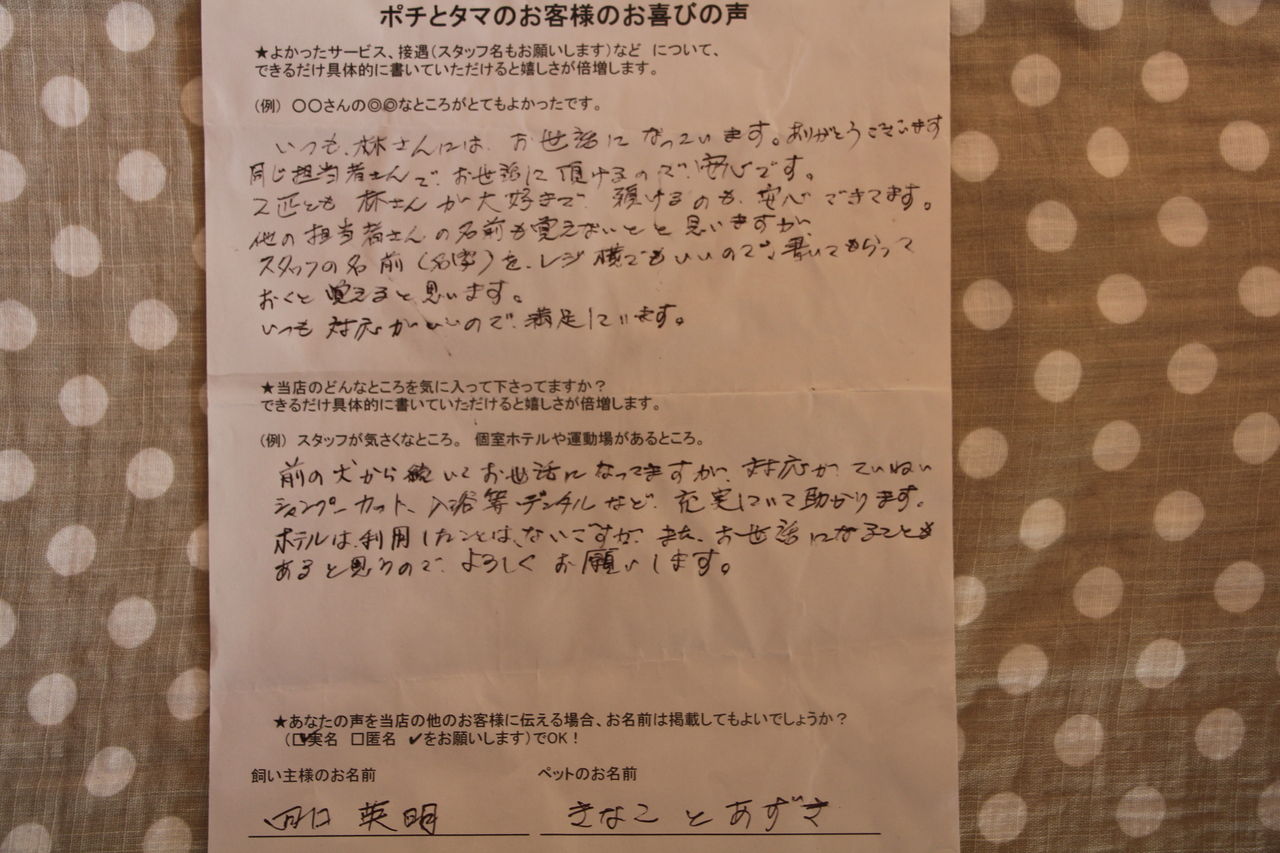 ポチとタマのお客様のお喜びの声
★よかったサービス、接遇(スタッフ名もお願いします)など について、
できるだけ具体的に書いていただけると嬉しさが倍増します。
(例) 〇〇さんの◎◎なところがとてもよかったです。
いつも、林さんには、お世話になっています。ありがとうございます
同じ担当者さんで、お世話に頂けるので、安心です。
2匹とも 林さんが大好きで、預けるのも、安心できてます。
他の担当者さんの名前も覚えないとと思いますが、
スタッフの名前(名字)を、レジ横でもいいので、書いてもらって
おくと覚えると思います。
いつも対応がいいので、満足しています。
★当店のどんなところを気に入って下さってますか?
できるだけ具体的に書いていただけると嬉しさが倍増します。
(例) スタッフが気さくなところ。 個室ホテルや運動場があるところ。
前の犬から続いてお世話になってますが、対応が、ていねい
シャンプーカット、入浴等、デンタルなど、充実していて助かります。
ホテルは、利用したことは、ないですが、また、お世話になることも
あると思うので、よろしくお願いします。
★あなたの声を当店の他のお客様に伝える場合、お名前は掲載してもよいでしょうか?
(☑実名 □匿名 ✓をお願いします)でOK!
飼い主様のお名前 ペットのお名前
英明 きなこ と あずき